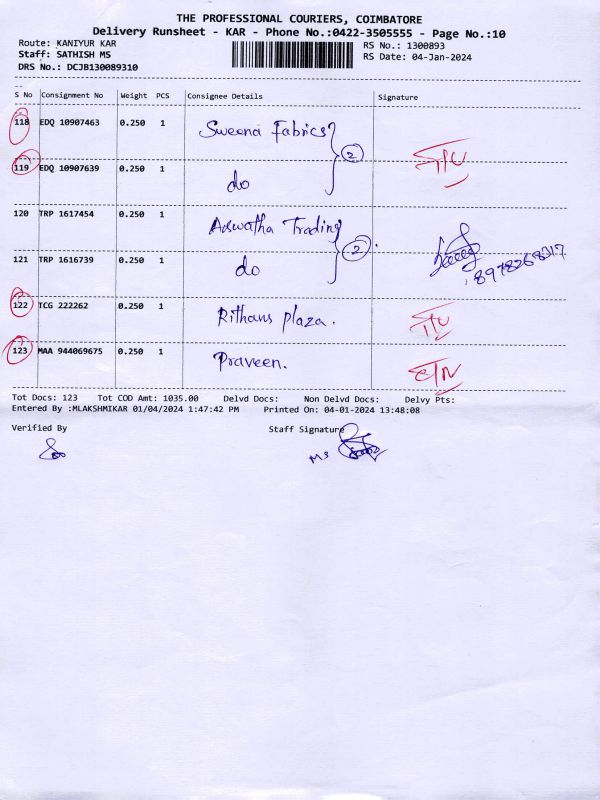 THE PROFESSIONAL COURIERS, COIMBATORE
Delivery Runsheet - KAR - Phone No.:0422-3505555 - Page No.:10
Route: KANIYUR KAR
RS No.: 1300893
Staff: SATHISH MS
RS Date: 04-Jan-2024
DRS No.: DCJB130089310
S No Consignment No Weight PCS Consignee Details Signature
118 EDQ 10907463 0.250 1 Sweena Fabrics
2
119 EDQ 10907639 0.250 1 do
120 TRP 1617454 0.250 1 Aswatha Trading
2
121 TRP 1616739 0.250 1 do
8978268317
122 TCG 222262 0.250 1 Rithans plaza.
123 MAA 944069675 0.250 1 Praveen.
Tot Docs: 123 Tot COD Amt: 1035.00 Delvd Docs: Non Delvd Docs: Delvy Pts:
Entered By :MLAKSHMIKAR 01/04/2024 1:47:42 PM Printed On: 04-01-2024 13:48:08
Verified By Staff Signature
MS